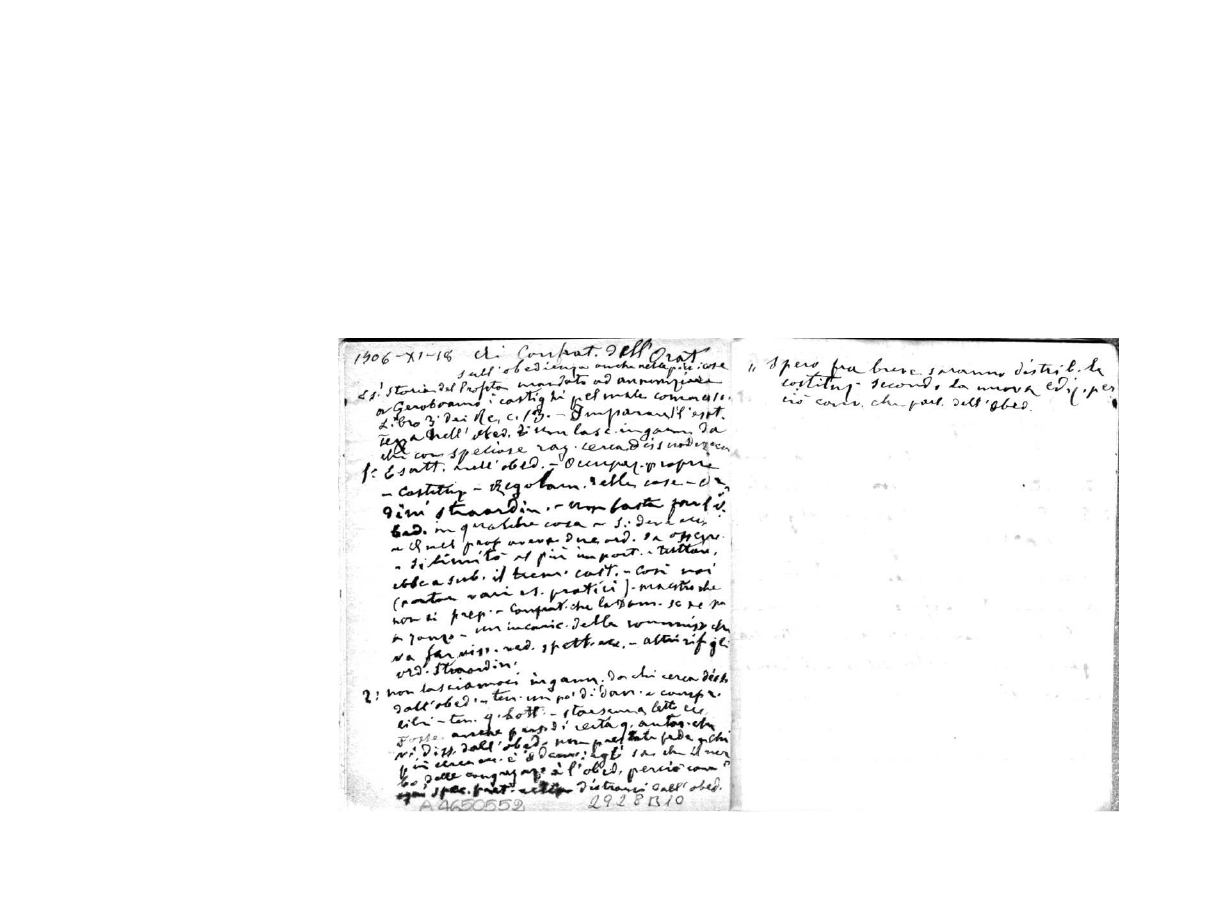 1906-XI-18 Ai Confrat. dell'Orat
sull'obbedienza anche nelle picc. cose
Es. Storia del Profeta mandato ad annunziare
a Geroboamo i castighi pel male commesso.
Libro 3° dei Re, c. 13. - Impariamo l'esat-
tezza nell'obed. di non lasc. ingann. da
chi con speciose rag. cerca
1° Esatt. nell'obed. - Occupaz. proprie
- Costituz. - Regolam. delle case - Or
dini straordin. - Non basta far l'o
bed. in qualche cosa - Si deve
- Quel prof. aveva due ord. da osserv.
- Si limitò al più import. - Tuttav.
ebbe a sub. il trem. cast. - Così noi
(portar vari es. pratici) - maestro che
non si prep. - Confrat. che la Dom. se ne va
a zonzo - un incaric. della
ord. straordin.
2° non lasciamoci ingann. da chi cerca
dall'obed. - ten. un po' di dan. e comp.
libri - ten. q. bott. - star senza
Fosse anche pers. di certa q. autor. che
vi diss. dall'obed. non prestate fede a chi
delle congregaz. è l'obed. perciò con
ogni spec. pret. distrarci dall'obed.
A4650552 2928B10
Spero fra breve saranno distrib. le
costituz. secondo la nuova ediz. per
ciò com. che parl. dell'obed.